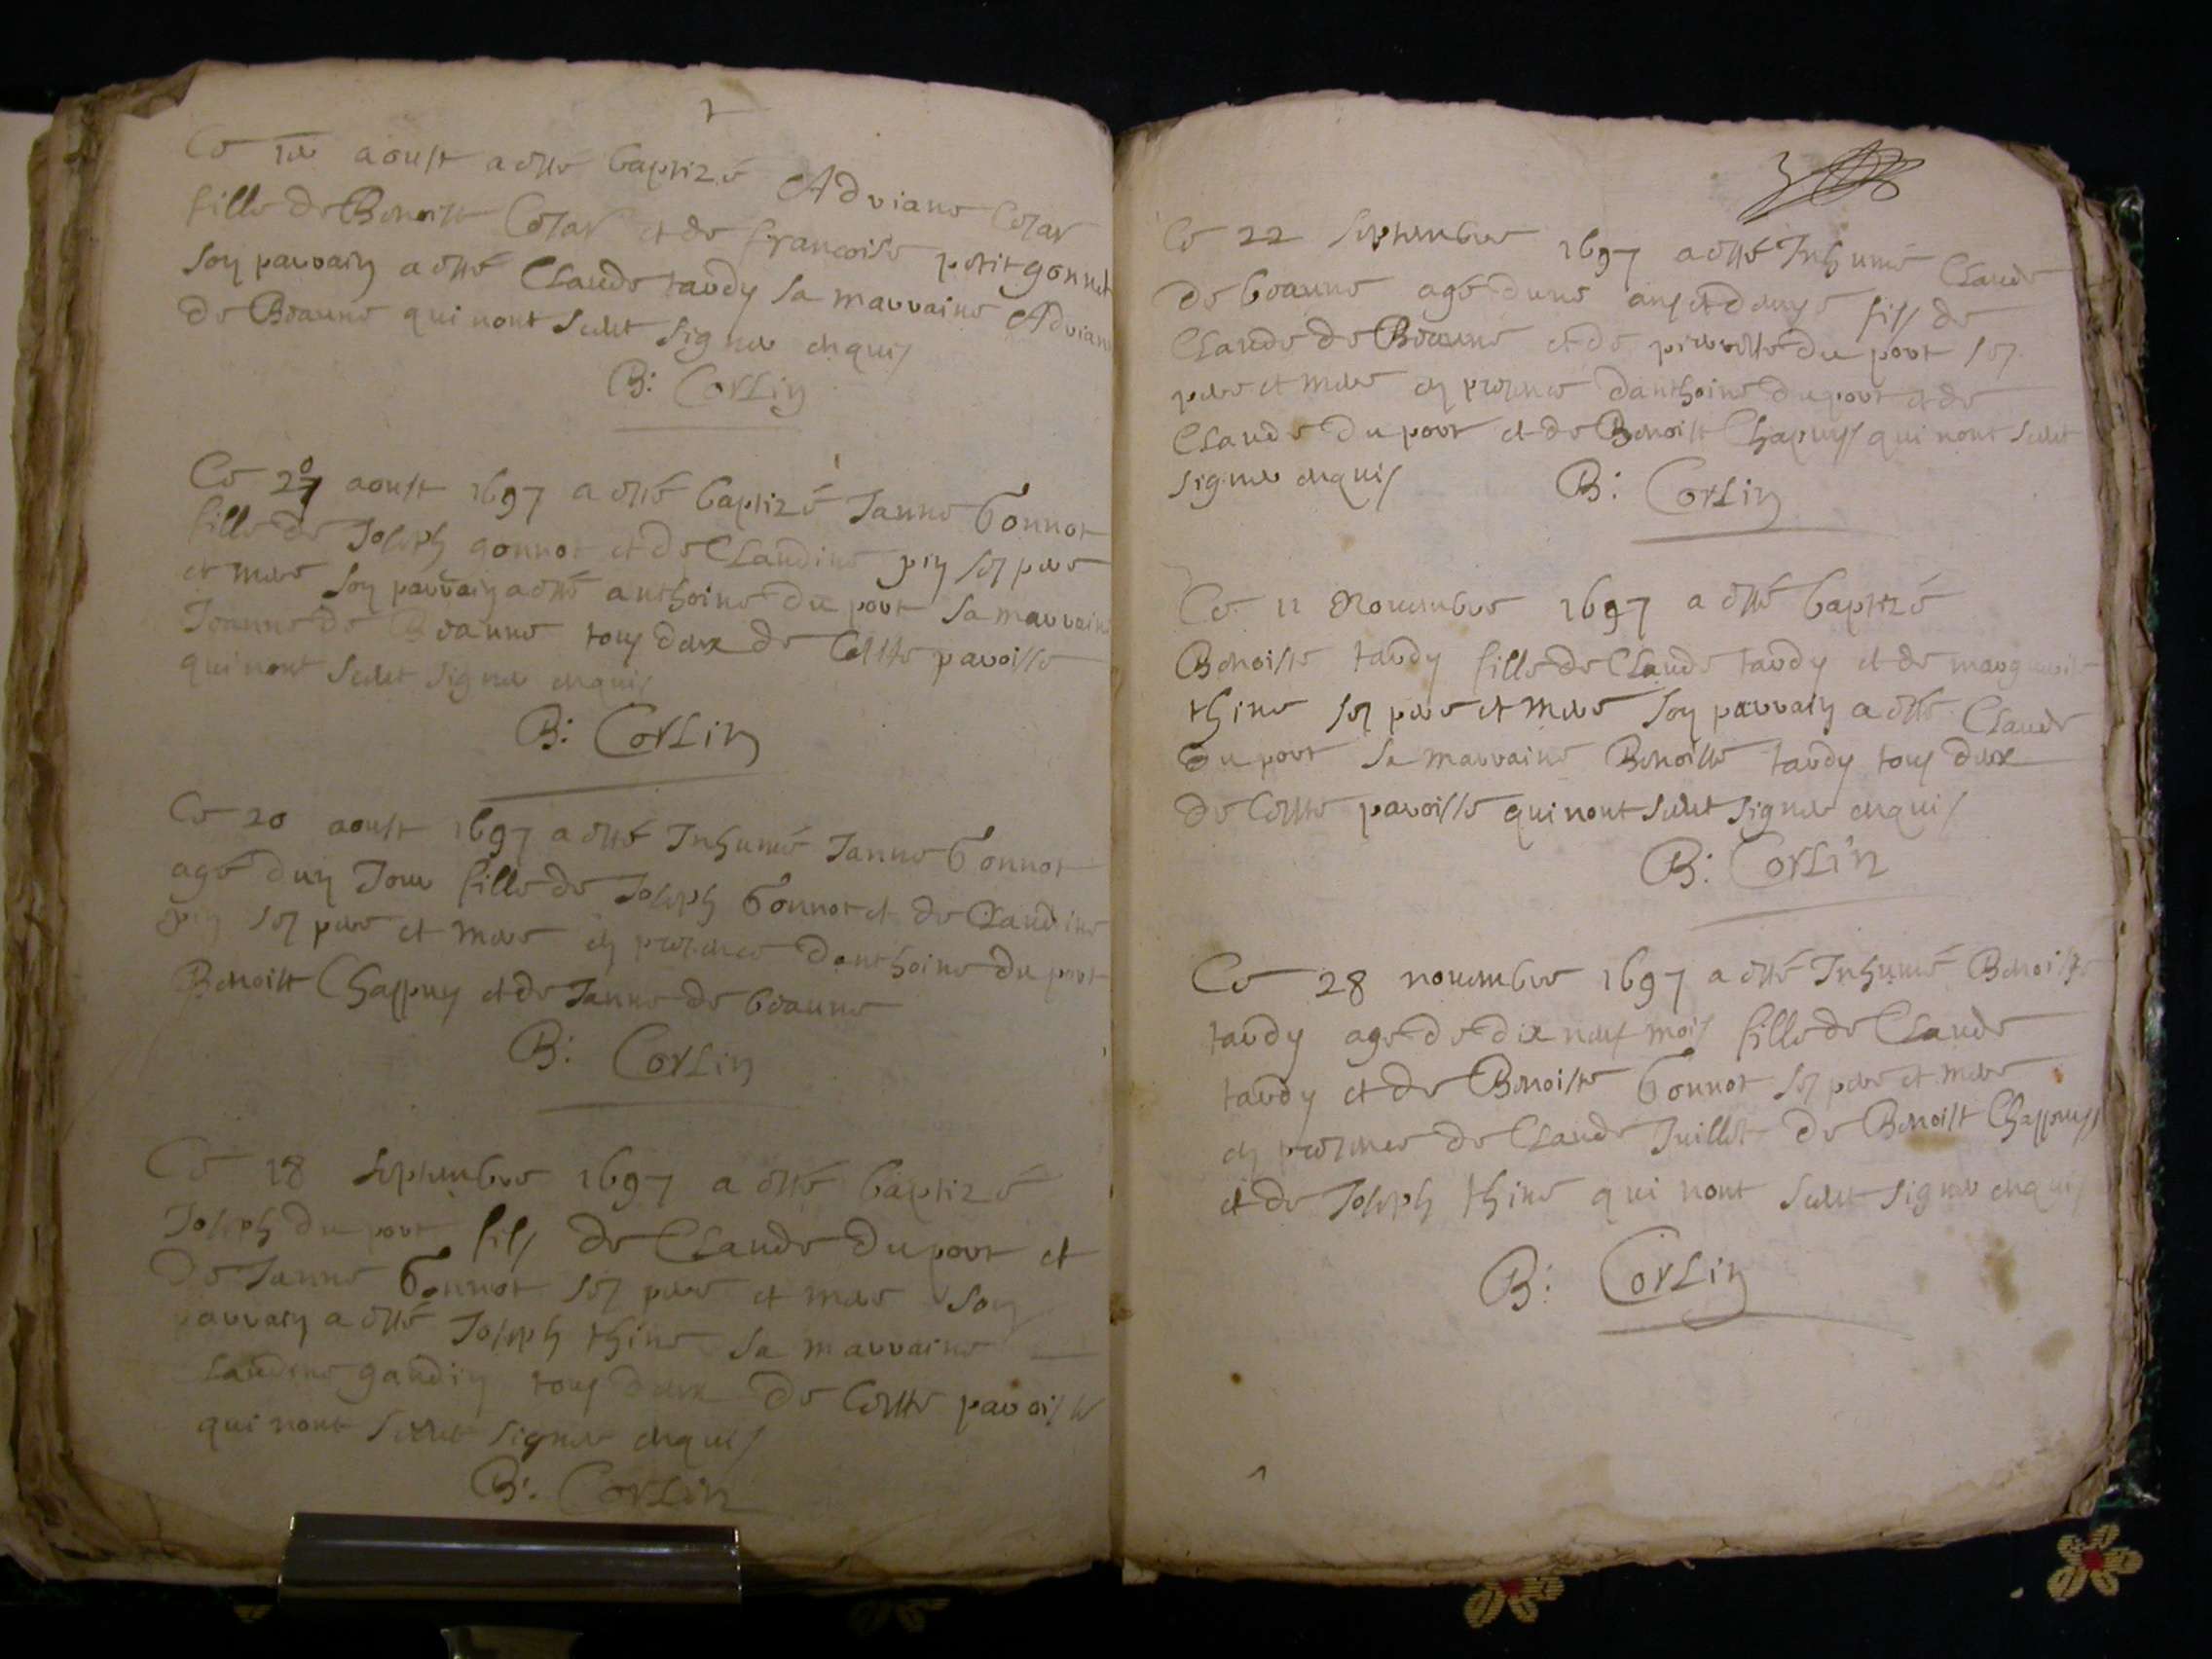 2
Ce 1er aoust a esté baptizé Adriane Cesar
fille de Benoist Cesar et de francoise petit gonnet
son parrain a esté Claude tardy sa marraine Adriane
de Beaune qui nont sceut signer enquis
B: Corlin
Ce 20 aoust 1697 a esté baptizé Janne Gonnot
fille de Joseph gonnot et de Claudine pin ses pere
et mere son parrain a esté anthoine du port sa marraine
Jeanne de Beaune tous deux de Cette paroisse
qui nont sceut signer enquis
B: Corlin
Ce 20 aoust 1697 a esté Inhumé Janne Gonnot
agé dun Jour fille de Joseph Gonnot et de Claudine
pin ses pere et mere en presence danthoine du port
Benoist Chappuy et de Janne de beaune
B: Corlin
Ce 18 septembre 1697 a esté baptizé
Joseph du port fils de Claude du port et
de Janne Gonnot ses pere et mere son
parrain a esté Joseph thine sa marraine
Claudine gaudin tous deux de Cette paroisse
qui nont sceut signer enquis
B: Corlin
3
Ce 22 septembre 1697 a esté Inhumé Claude
de beaune agé dune ans et demye fils de
Claude de Beaune et de pierrette du port ses
pere et mere en presence danthoine du port et de
Claude du port et de Benoist Chapuys qui nont sceut
signer enquis
B: Corlin
Ce 11 Nouembre 1697 a esté baptizé
Benoiste tardy fille de Claude tardy et de marguerite
thine ses pere et mere son parrain a esté Claude
Du port sa marraine Benoiste tardy tous deux
de Cette paroisse qui nont sceut signer enquis
B: Corlin
Ce 28 nouembre 1697 a esté Inhumé Benoiste
tardy agé de dix neuf mois fille de Claude
tardy et de Benoiste Gonnot ses pere et mere
en presence de Claude Juillet de Benoist Chappuys
et de Joseph thine qui nont sceut signer enquis
B: Corlin